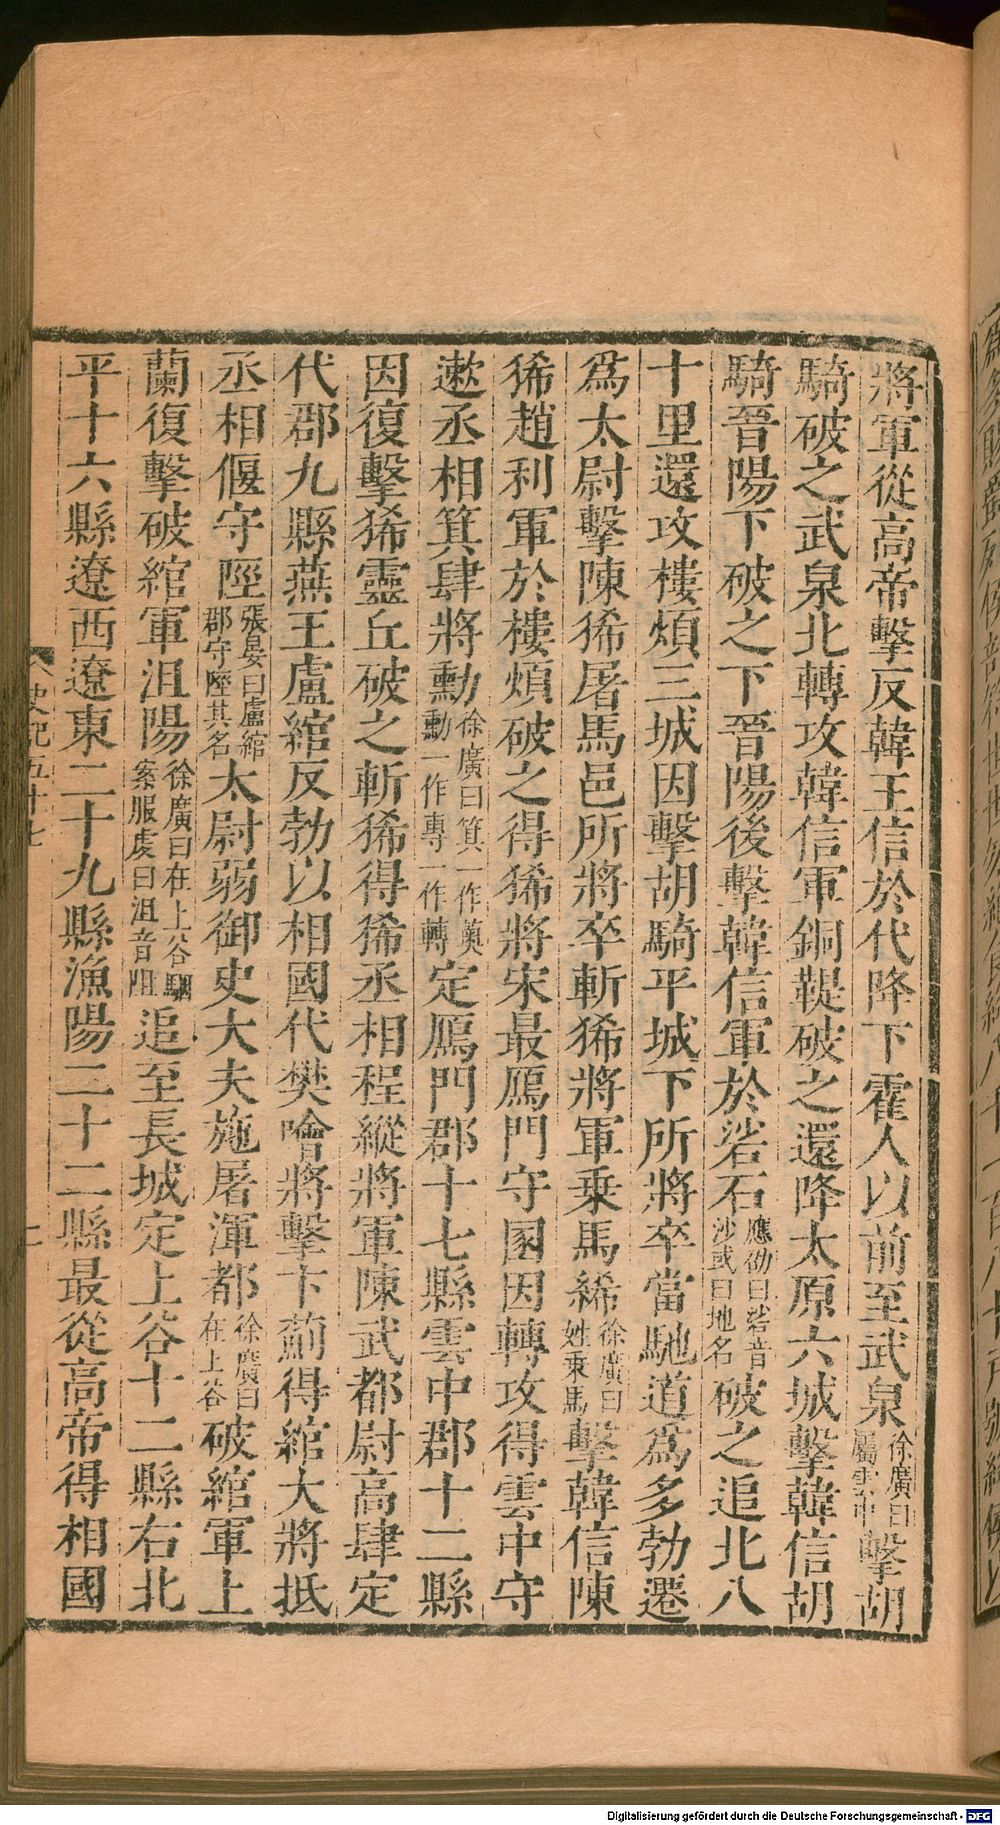 將軍從高帝擊反韓王信於代降下霍人以前至武泉徐廣曰屬雲中擊胡
騎破之武泉北轉攻韓信軍銅鞮破之還降太原六城擊韓信胡
騎晉陽下破之下晉陽後擊韓信軍於硰石應劭曰硰音沙或曰地名破之追北八
十里還攻樓煩三城因擊胡騎平城下所將卒當馳道爲多勃遷
爲太尉擊陳豨屠馬邑所將卒斬豨將軍乗馬絺徐廣曰姓乗馬擊韓信陳
豨趙利軍於樓煩破之得豨將宋最鴈門守圂因轉攻得雲中守
遬丞相箕肆將勳徐廣曰箕一作薁勳一作專一作轉定鴈門郡十七縣雲中郡十二縣
因復擊豨靈丘破之斬豨得豨丞相程縱將軍陳武都尉高肆定
代郡九縣燕王盧綰反勃以相國代樊噲將擊下薊得綰大將抵
丞相偃守陘張晏曰盧綰郡守陘其名太尉弱御史大夫施屠渾都徐廣曰在上谷破綰軍上
蘭復擊破綰軍沮陽徐廣曰在上谷駰案服虔曰沮音阻追至長城定上谷十二縣右北
平十六縣遼西遼東二十九縣漁陽二十二縣最從高帝得相國
史記五十七
Digitalisierung gefördert durch die Deutsche Forschungsgemeinschaft - DFG